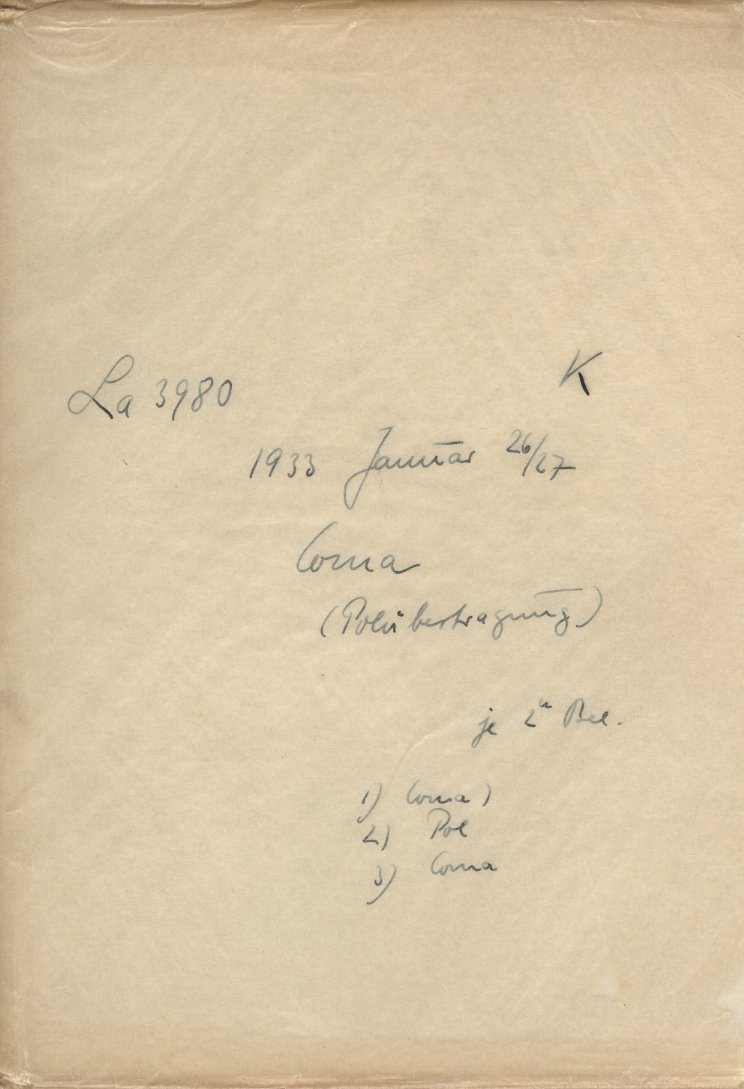 La 3980 K
1933 Januar 26/27
Coma
(Polübertragung)
je 2ᵐ Bel.
1) Coma )
2) Pol
3) Coma